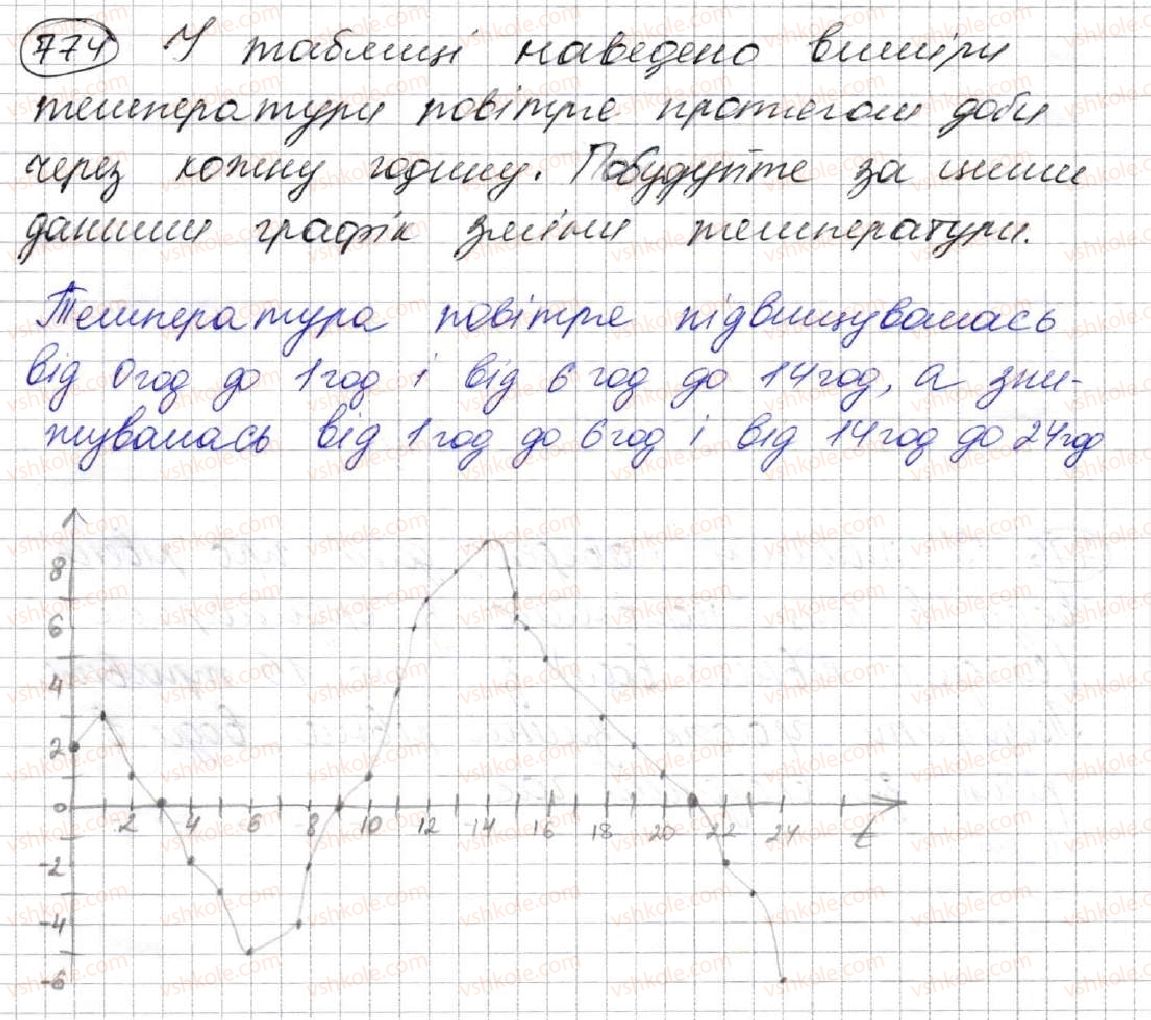 774 У таблиці наведено виміри
температури повітря протягом доби
через кожну годину. Побудуйте за цими
даними графік зміни температури.
Температура повітря підвищувалась
від 0 год до 1 год і від 6 год до 14 год, а зни-
жувалась від 1 год до 6 год і від 14 год до 24 год
8
6
4
2
0 2 4 6 8 10 12 14 16 18 20 22 24 t
-2
-4
-6